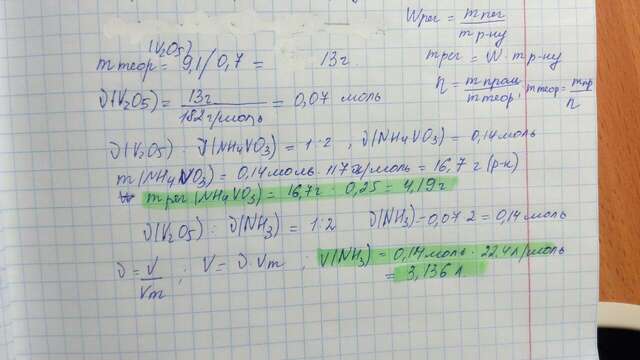 Wрег = mрег / mр-ну
mтеор(V₂O₅) = 9,1/0,7 = 13г.
mрег = W · mр-ну
η = mпрак / mтеор ; mтеор = mпр / η
ν(V₂O₅) = 13г / 182г/моль = 0,07 моль
ν(V₂O₅) : ν(NH₄VO₃) = 1:2 , ν(NH₄VO₃) = 0,14моль
m(NH₄VO₃) = 0,14моль · 117г/моль = 16,7г (р-н)
mрег(NH₄VO₃) = 16,7г · 0,25 = 4,19г
ν(V₂O₅) : ν(NH₃) = 1:2 ν(NH₃)=0,07·2 = 0,14моль
ν = V / Vm ; V = ν·Vm ; V(NH₃) = 0,14моль · 22.4л/моль
= 3,136л.